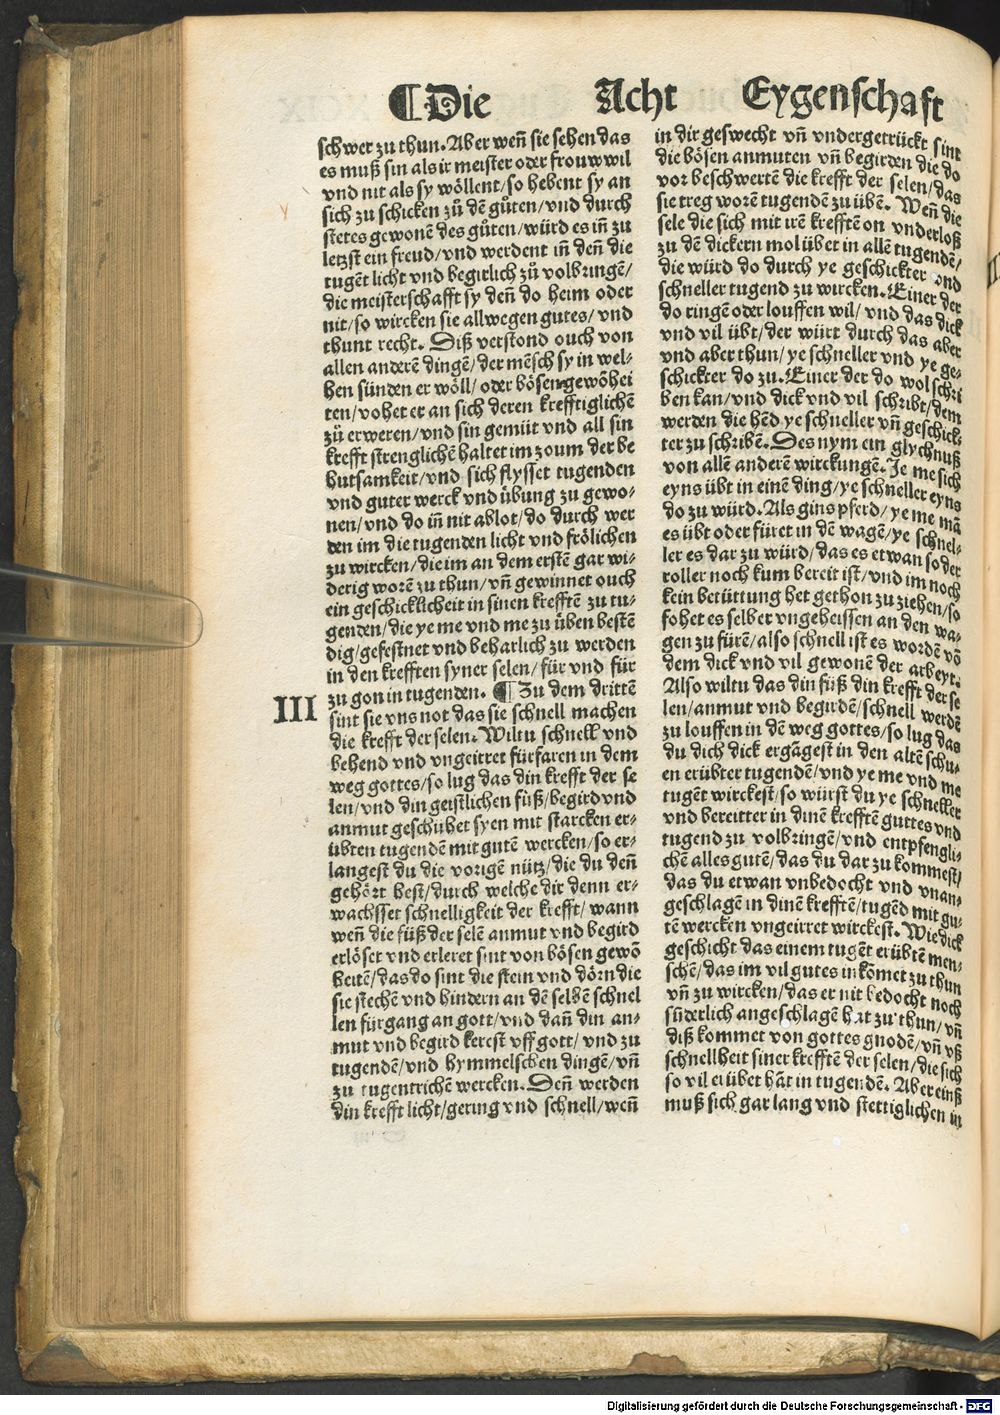 ¶ Die Acht Eygenschaft
schwer zu thun. Aber weñ sie sehen das
es muß sin als ir meister oder frouw wil
vnd nit als sy wöllent/so hebent sy an
sich zu schicken zů dē gůten/vnd durch
stetes gewonē des gůten/würd es iñ zu
letzst ein freud/vnd werdent iñ deñ die
tugēt licht vnd begirlich zů volbringē/
die meisterschafft sy deñ do heim oder
nit/so wircken sie allwegen gutes/vnd
thunt recht. Diß verstond ouch von
allen anderē dingē/der mēsch sy in wel-
hen sünden er wöll/oder bösen gewōhei
ten/vohet er an sich deren krefftiglichē
zů erweren/vnd sin gemüt vnd all sin
krefft strenglichē haltet im zoum der be
hutsamkeit/vnd sich flysset tugenden
vnd guter werck vnd übung zu gewo-
nen/vnd do iñ nit ablot/do durch wer
den im die tugenden licht vnd frölichen
zu wircken/die im an dem erstē gar wi-
derig worē zu thun/vñ gewinnet ouch
ein geschicklicheit in sinen krefftē zu tu-
genden/die ye me vnd me zu üben bestē
dig/gefestnet vnd beharlich zu werden
in den krefften syner selen/für vnd für
zu gon in tugenden. ¶ Zu dem drittē
III
sint sie vns not das sie schnell machen
die krefft der selen. Wiltu schnell vnd
behend vnd vngeirret fürfaren in dem
weg gottes/so lug das din krefft der se
len/vnd din geistlichen füß/begird vnd
anmut geschühet syen mit starcken er-
übten tugendē mit gutē wercken/so er-
langest du die vorigē nütz/die du deñ
gehört hest/durch welche dir denn er-
wachsset schnelligkeit der krefft/wann
weñ die füß der selē anmut vnd begird
erlöset vnd erleret sint von bösen gewō
heitē/das do sint die stein vnd dörn die
sie stechē vnd hindern an dē selbē schnel
len fürgang an gott/vnd dañ din an-
mut vnd begird kerest vff gott/vnd zu
tugendē/vnd hymmelschen dingē/vñ
zu tugentrichē wercken. Deñ werden
din krefft licht/gering vnd schnell/weñ
in dir geswecht vñ vndergetrückt sint
die bösen anmuten vñ begirden die do
vor beschwertē die krefft der selen/das
sie treg worē tugendē zu übē. Weñ die
sele die sich mit irē krefftē on vnderloß
zu dē dickern mol übet in allē tugendē/
die würd do durch ye geschickter vnd
schneller tugend zu wircken. Einer der
do ringē oder louffen wil/vnd das dick
vnd vil übt/der würt durch das aber
vnd aber thun/ye schneller vnd ye ge-
schickter do zu. Einer der do wol schri
ben kan/vnd dick vnd vil schribt/dem
werden die hēd ye schneller vñ geschick
ter zu schribē. Des nym ein glychnuß
von allē anderē wirckungē. Je me sich
eyns übt in einē ding/ye schneller eyns
do zu würd. Als gins pferd/ye me mā
es übt oder füret in dē wagē/ye schnel-
ler es dar zu würd/das es etwan so der
roller noch kum bereit ist/vnd im noch
kein betüttung het gethon zu ziehen/so
fohet es selber vngeheissen an den wa-
gen zu fürē/also schnell ist es wordē vō
dem dick vnd vil gewonē der arbeyt.
Also wiltu das din füß din krefft der se
len/anmut vnd begirdē/schnell werdē
zu louffen in dē weg gottes/so lug das
du dich dick ergāgest in den altē schu-
en erübter tugendē/vnd ye me vnd me
tugēt wirckest/so würst du ye schneller
vnd bereitter in dinē krefftē guttes vnd
tugend zu volbringē/vnd entpfengli-
chē alles gutē/das du dar zu kommest/
das du etwan vnbedocht vnd vnan-
geschlagē in dinē krefftē/tugēd mit gu-
tē wercken vngeirret wirckest. Wie dick
geschicht das einem tugēt erübtē men-
schē/das im vil gutes in kōmet zu thun
vñ zu wircken/das er nit bedocht noch
sūderlich angeschlagē hat zu thun/vñ
diß kommet von gottes gnodē/vñ vß
schnellheit siner krefftē der selen/die sich
so vil erübet hāt in tugendē. Aber einß
muß sich gar lang vnd stettiglichen in
Digitalisierung gefördert durch die Deutsche Forschungsgemeinschaft - DFG